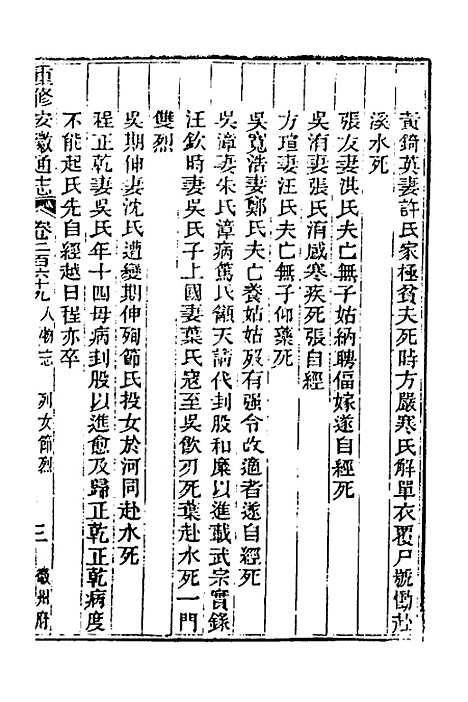 黃錡英妻許氏家極貧夫死時方嚴寒氏解單衣覆尸號慟赴
溪水死
張友妻洪氏夫亡無子姑納聘偪嫁遂自經死
吳消妻張氏消感寒疾死張自經
方瑄妻汪氏夫亡無子仰藥死
吳寬浩妻鄭氏夫亡養姑姑歿有強令改適者遂自經死
吳漳妻朱氏漳病篤氏籲天請代刲股和糜以進載武宗實錄
汪欽時妻吳氏子上國妻葉氏寇至吳飲刃死葉赴水死一門
雙烈
吳期伸妻沈氏遭變期伸殉節氏投女於河同赴水死
程正乾妻吳氏年十四母病刲股以進愈及歸正乾正乾病度
不能起氏先自經越日程亦卒
重修安徽通志 卷二百六十九 人物志 列女節烈 三 徽州府